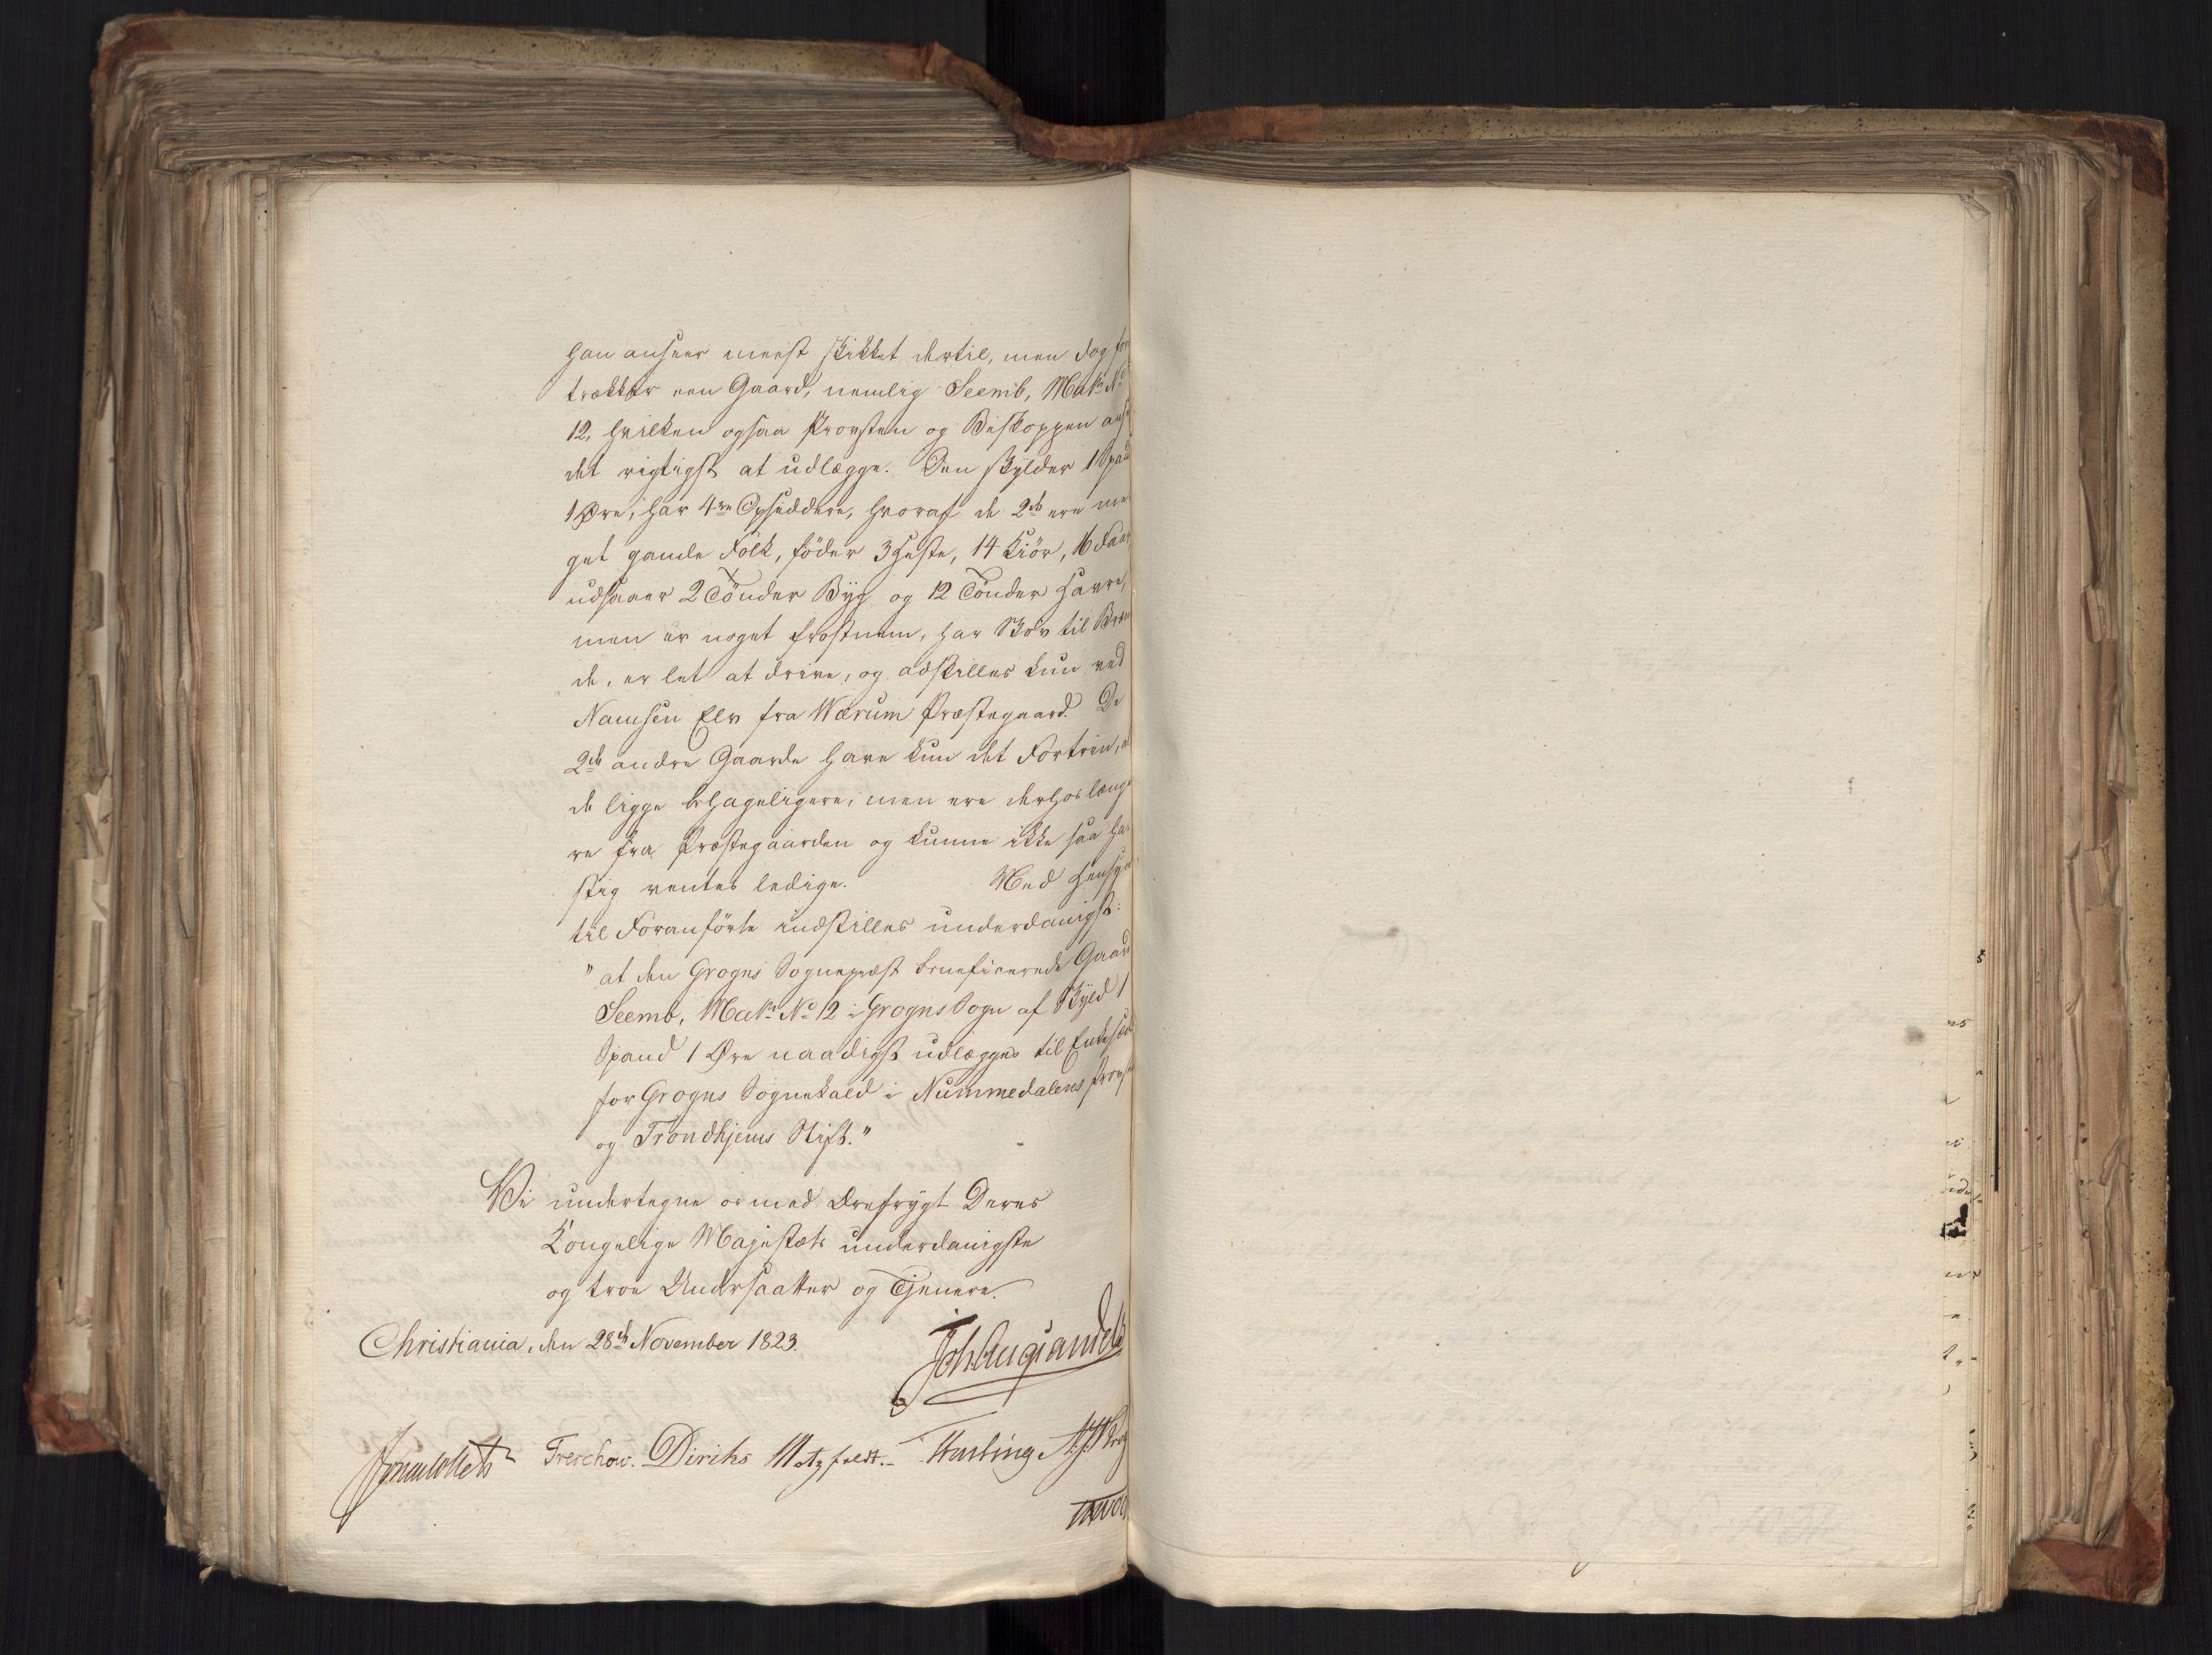 han ansees meest skikket dertil, men dog for
trækker een Gaard, nemlig Seemb, Matr: No
12, hvilken ogsaa Provsten og Biskoppen ans
det rigtigst at udlægge. Den skylder 1 Span
1 Øre, har 4re Opsiddere, hvoraf de 2de ere me
get gamle Folk, föder 3 Heste, 14 Kiör, 16 Faar,
udsaaer 2 Tönder Byg og 12 Tönder Havre,
men er noget frostnem, har Skov til Bræn
de, er let at drive, og adskilles kun ved
Namsen Elv fra Wærum Præstegaard. De
2de andre Gaarde have kun det Fortrin, a
de ligge behageligere, men ere derhos læng
re fra Præstegaarden og kunne ikke saa ha
stig ventes ledige. Med Hensyn
til Foranförte indstilles underdanigst:
"at den Grogns Sognepræst beneficerede Gaard
Seemb, Matr: No 12 i Grogns Sogn af Skyld 1
Spand 1 Øre naadigst udlægges til Enkesæde
for Grogns Sognekald i Nummedalens Provst
og Trondhjems Stift."
Vi undertegne os med Ærefrygt Deres
Kongelige Majestæts underdanigste
og troe Undersaatter og Tjenere.
Christiania, den 28de November 1823.
Joh Aug Sandels
Jonas Collett Treschow. Diriks Motzfeldt. Fasting